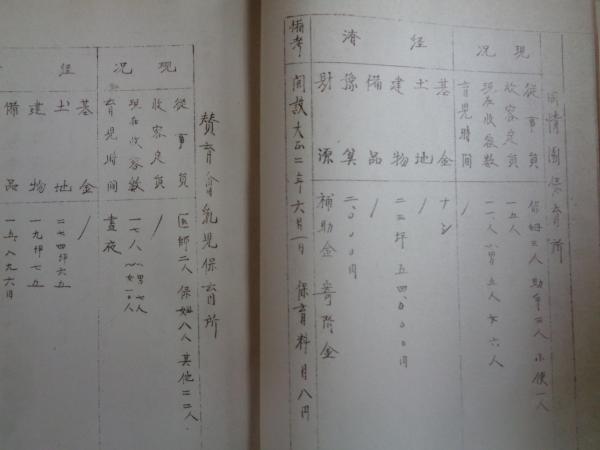 同情園保育所
現況
従事員 保姆三人 助手三人 小使一人
收容定員 一五人
現在收容数 一一人 男五人 女六人
育児時間 /
経済
基金 ナシ
土地 /
建物 二二坪 五四〇〇〇円
備品 /
豫算 二〇〇〇円
財源 補助金 寄附金
備考 開設大正二年六月一日 保育料月八円
賛育会乳児保育所
現況
従事員 医師二人 保姆八人 其他二二人
收容定員 /
現在收容数 一七人 男七人 女一〇人
育児時間 昼夜
経
基金 /
土地 二七四坪六五
建物 一九坪七五
備品 一五八九六円